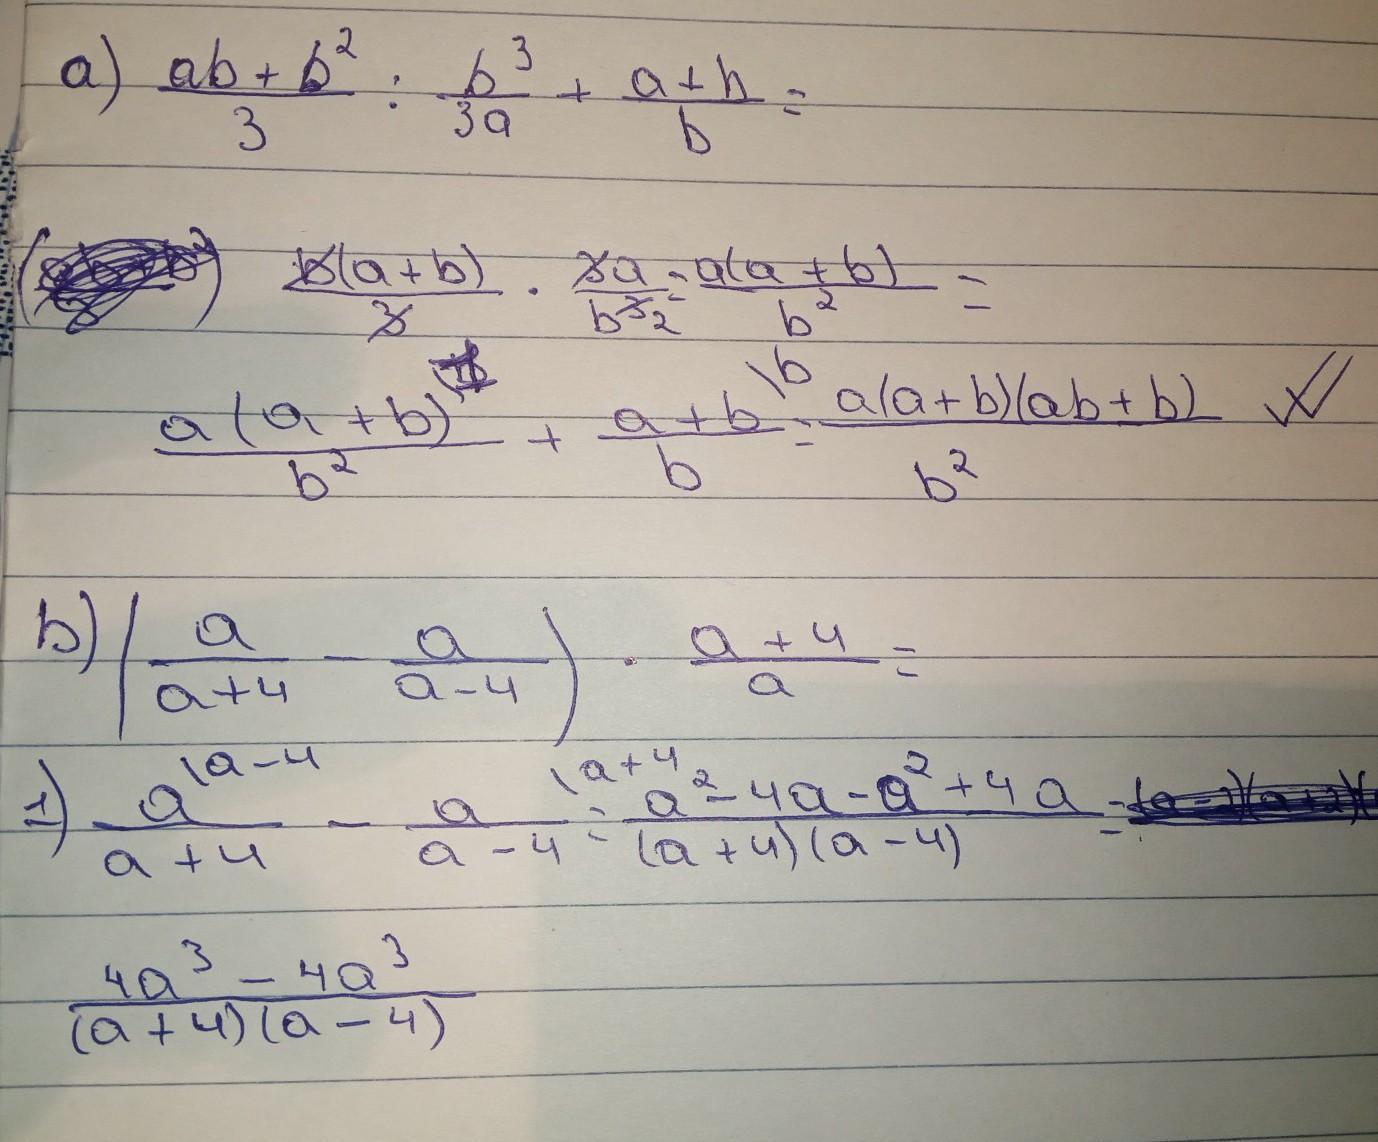 a) (ab + b²)/3 : b³/3a + (a + b)/b =
b(a + b)/3 · 3a/b³ 2 = a(a + b)/b² =
a(a + b)/b² + (a + b)/b \b = a(a + b)(ab + b)/b² ✓
b) (a/(a + 4) - a/(a - 4)) · (a + 4)/a =
1) a/(a + 4) \a - 4 - a/(a - 4) \a + 4 = (a² - 4a - a² + 4a)/((a + 4)(a - 4)) =
(4a³ - 4a³)/((a + 4)(a - 4))